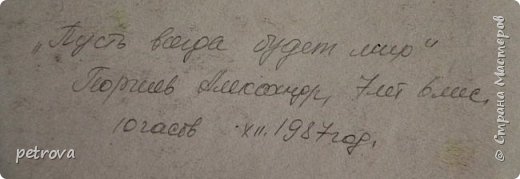 „Пусть всегда будет мир"
Александр, 7 лет 6 мес.
10 часов XII. 1987 год.
petrova
© Страна Мастеров